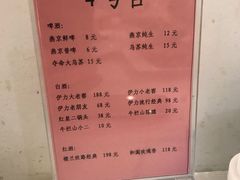 啤酒:
燕京鲜啤 8 元 燕京纯生 12 元
燕京普啤 6 元 乌苏纯生 15 元
夺命大乌苏 15 元
白酒:
伊力大老窖 188 元 伊力小老窖 118 元
伊力老朋友 68 元 伊力流行经典 98 元
红星二锅头 38 元 牛栏山 20 元
牛栏山小二 10 元
红酒:
楼兰丝路经典 198 元 和阗玫瑰香 118 元